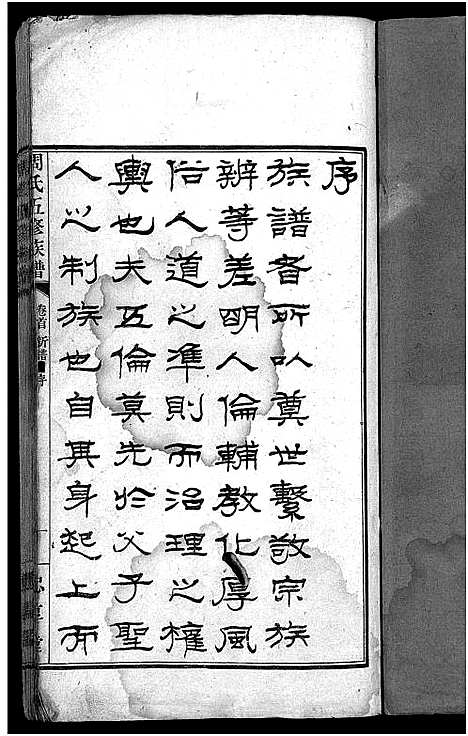 序
族譜者所以奠世繫敬宗族
辨等差明人倫輔教化厚風
俗人道之準則而治理之權
輿也夫五倫莫先於父子聖
人之制族也自其身起上而
周氏五修族譜
卷首 新譜序